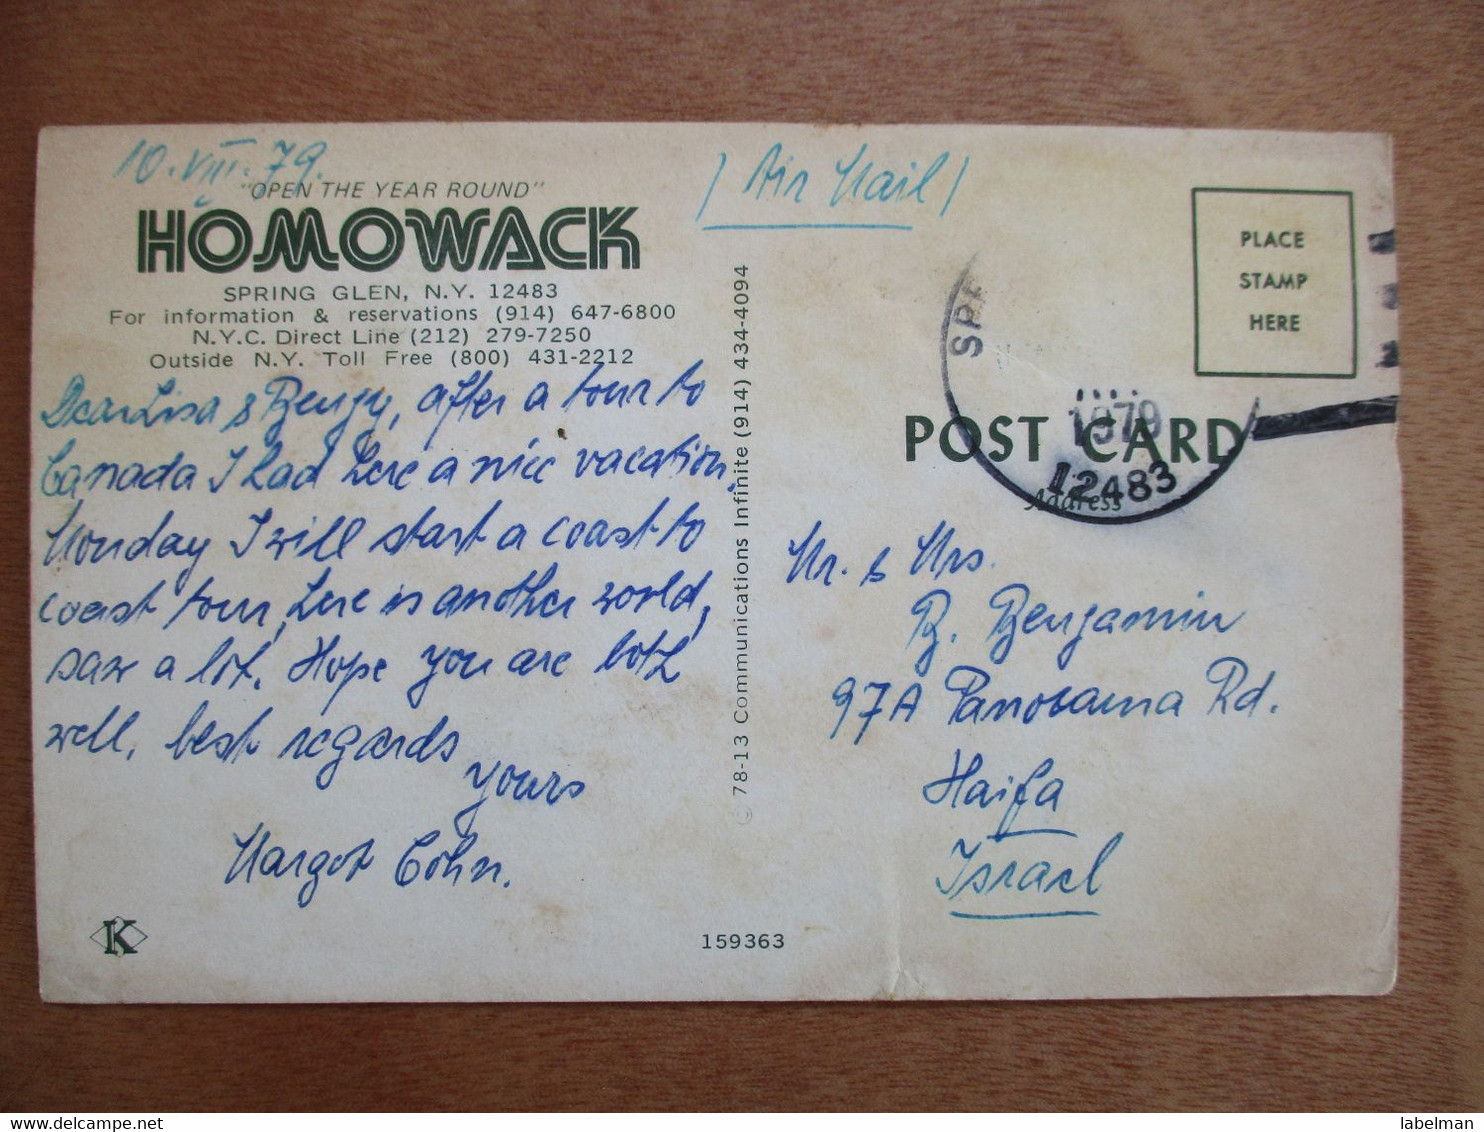 10.VIII.79.
"OPEN THE YEAR ROUND"
HOMOWACK
SPRING GLEN, N.Y. 12483
For information & reservations (914) 647-6800
N.Y.C. Direct Line (212) 279-7250
Outside N.Y. Toll Free (800) 431-2212
Dear Lisa & Benjy, after a tour to
Canada I had here a nice vacation.
Monday I will start a coast to
coast tour, here is another world,
saw a lot. Hope you are both
well, best regards
yours
Margot Cohn.
K
159363
© 78-13 Communications Infinite (914) 434-4094
/ Air Mail /
PLACE
STAMP
HERE
SPR
1979
12483
POST CARD
Address
Mr. & Mrs.
B. Benjamin
97A Panorama Rd.
Haifa
Israel
labelman
www.delcampe.net